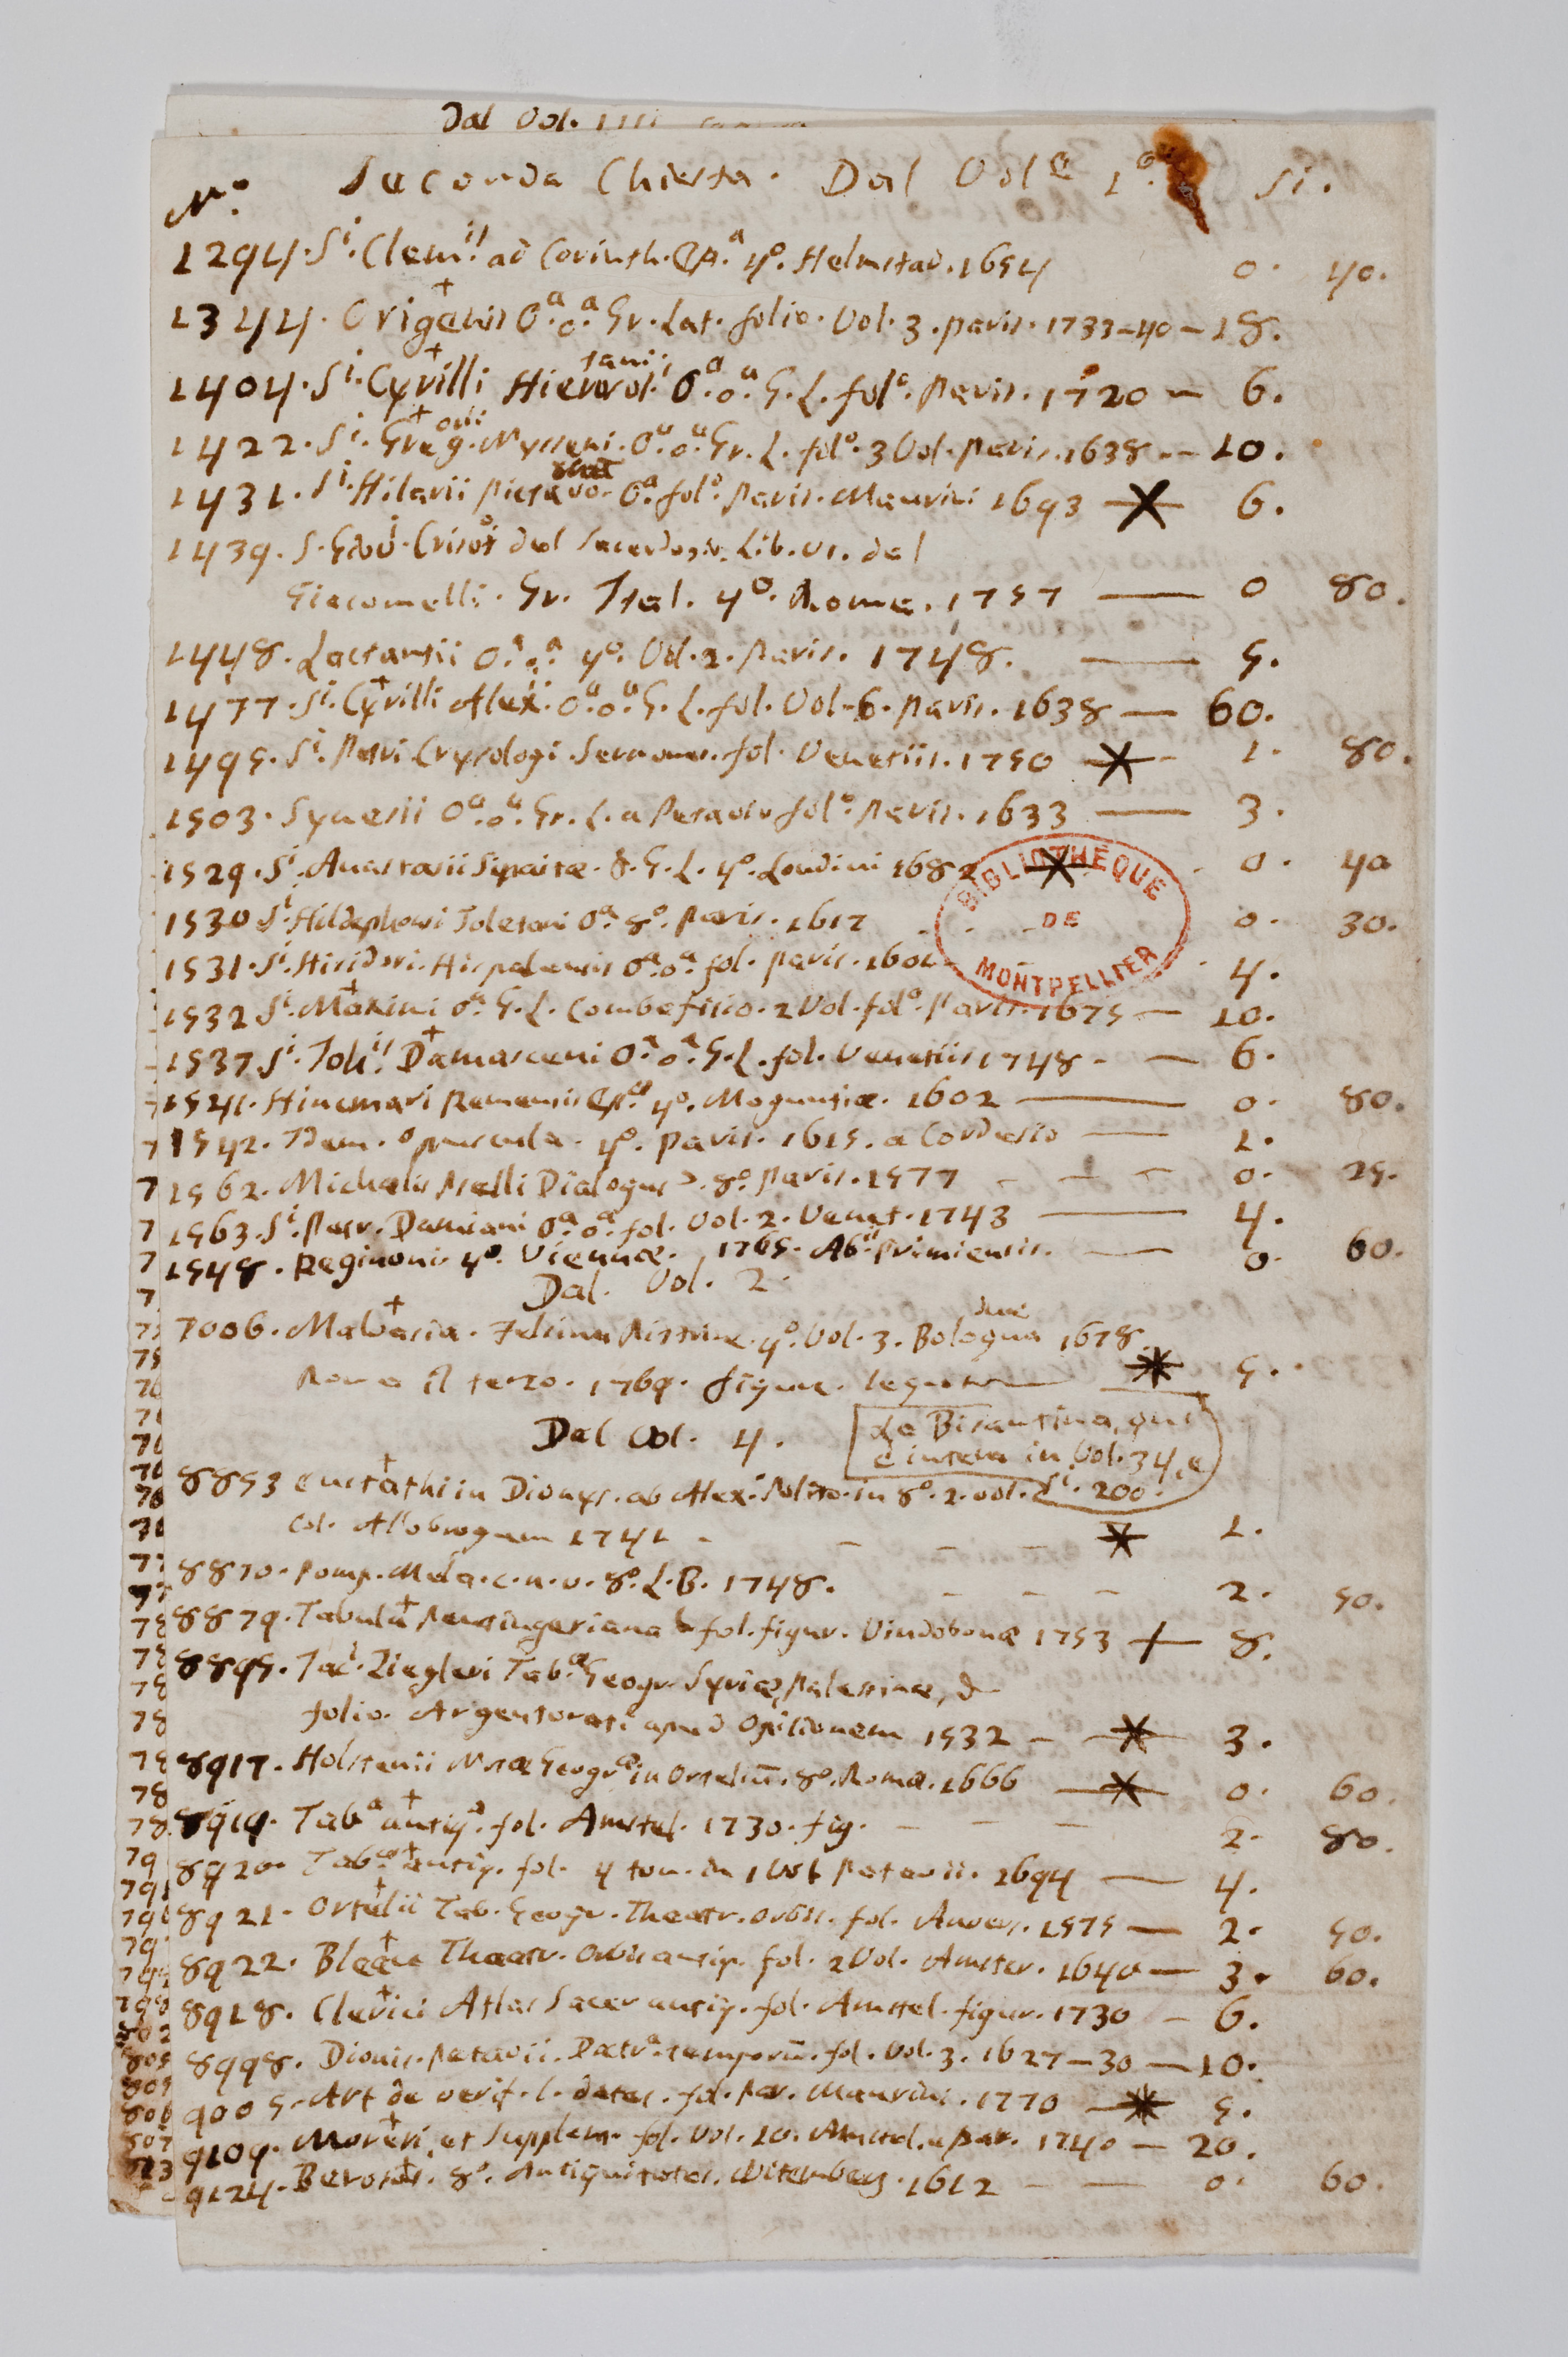 Dal Vol.
N.º Seconda Chiesta. Dal Vol.e 1.º Si.
1294. Si. Clem.ti ad Corinth. Ep.a 4º. Helmstad. 1654 0. 40.
1344. Origenis O.a o.a Gr. Lat. folio. Vol. 3. Paris. 1733-40 - 18.
1404. Si. Cyrilli Hierosol. O.a o.a G. L. folº. Paris. 1720 - 6.
1422. Si. Greg.orii Nysseni. O.a o.a Gr. L. folº. 3 Vol. Paris. 1638 -- 10.
1431. Si. Hilarii Pictavo. O.a folº. Paris. Maurini 1693 6.
1439. S. Giov. Crisos del Sacerdozio. Lib. VI. del
Giacomelli. Gr. Ital. 4º. Roma. 1757 — 0 80.
1448. Lactantii O.a o.a 4º. Vol. 2. Paris. 1748. — 5.
1477. Si. Cyrilli Alex.i O.a o.a G. L. fol. Vol. 6. Paris. 1638 — 60.
1495. Si. Petri Crysologi Sermones. fol. Venetiis. 1750 1. 80.
1503. Synesii O.a o.a Gr. L. a Petavio folº. Paris. 1633 — 3.
1529. Si. Anastasii Sinaitæ. G. L. 4º. Londini 1682 0. 40
1530 Si. Hildephonsi Toletani O.a 8º. Paris. 1617 0. 30.
1531. Si. Hisidori. Hispalensis O.a o.a fol. Paris. 1601 4.
1532 Si. Maximi O.a G. L. Combefisio. 2 Vol. folº. Paris. 1675 — 10.
1537. Si. Joh.is Damasceni O.a o.a G. L. fol. Venetiis 1748 - — 6.
1541. Hincmari Remensis Ep.æ 4º. Moguntiæ. 1602 — 0. 80.
1542. Idem. Opuscula. 4º. Paris. 1615. a Cordesio — 1.
1562. Michaelis Pselli Dialogus. 8º. Paris. 1577 - — 0. 25.
1563. Si. Petr. Damiani O.a o.a fol. Vol. 2. Venet. 1743 — 4.
1548. Reginonis 4º. Viennæ. 1765. Ab.is Primiensis. — 0. 60.
Dal. Vol. 2.
7006. Malvasia. Felsina Pittrice. 4º. Vol. 3. Bologna due 1678.
Roma il terzo. 1769. figure. 5.
Dal Vol. 4.
La Bisantina, qui
è intera in Vol. 34, e
Si. 200.
8853 Eustathii in Dionys. ab Alex. Polito. in 8º. 2. vol.
Col. Allobrogum 1741 - 1.
8870. Pomp. Mela. c. n. v. 8º. L. B. 1748. 2. 50.
8879. Tabula Peutingeriana fol. figur. Vindobonæ 1753 8.
8895. Jac.i Ziegleri Tab.æ Geogr. Syriæ, Palestinæ, &
folio. Argentorati apud Opilionem 1532 - 3.
8917. Holstenii Notæ Geogr.æ in Ortelium. 8º. Romæ. 1666 0. 60.
8919. Tab.a antiq. fol. Amstel. 1730. fig. 2. 80.
8920. Tab.æ antiq. fol. 4 tom. in 1 Vol Patavii. 1694 — 4.
8921. Ortelii Tab. Geogr. Theatr. Orbis. fol. Anvers. 1575 — 2. 50.
8922. Bleau Theatr. Orbis antiq. fol. 2 Vol. Amster. 1640 — 3. 60.
8918. Clerici Atlas Sacer antiq. fol. Amstel. figur. 1730 - 6.
8998. Dionis. Petavii. Doctr.a temporũ. fol. Vol. 3. 1627-30 — 10.
9005. Art de verif. l. dates. fol. Par. Maurins. 1770 5.
9109. Moreri et Supplem. fol. Vol. 10. Amstel. e Par. 1740 — 20.
9124. Berosus. 8º. Antiquitates. Witemberg. 1612 - — 0. 60.
BIBLIOTHEQUE
DE
MONTPELLIER